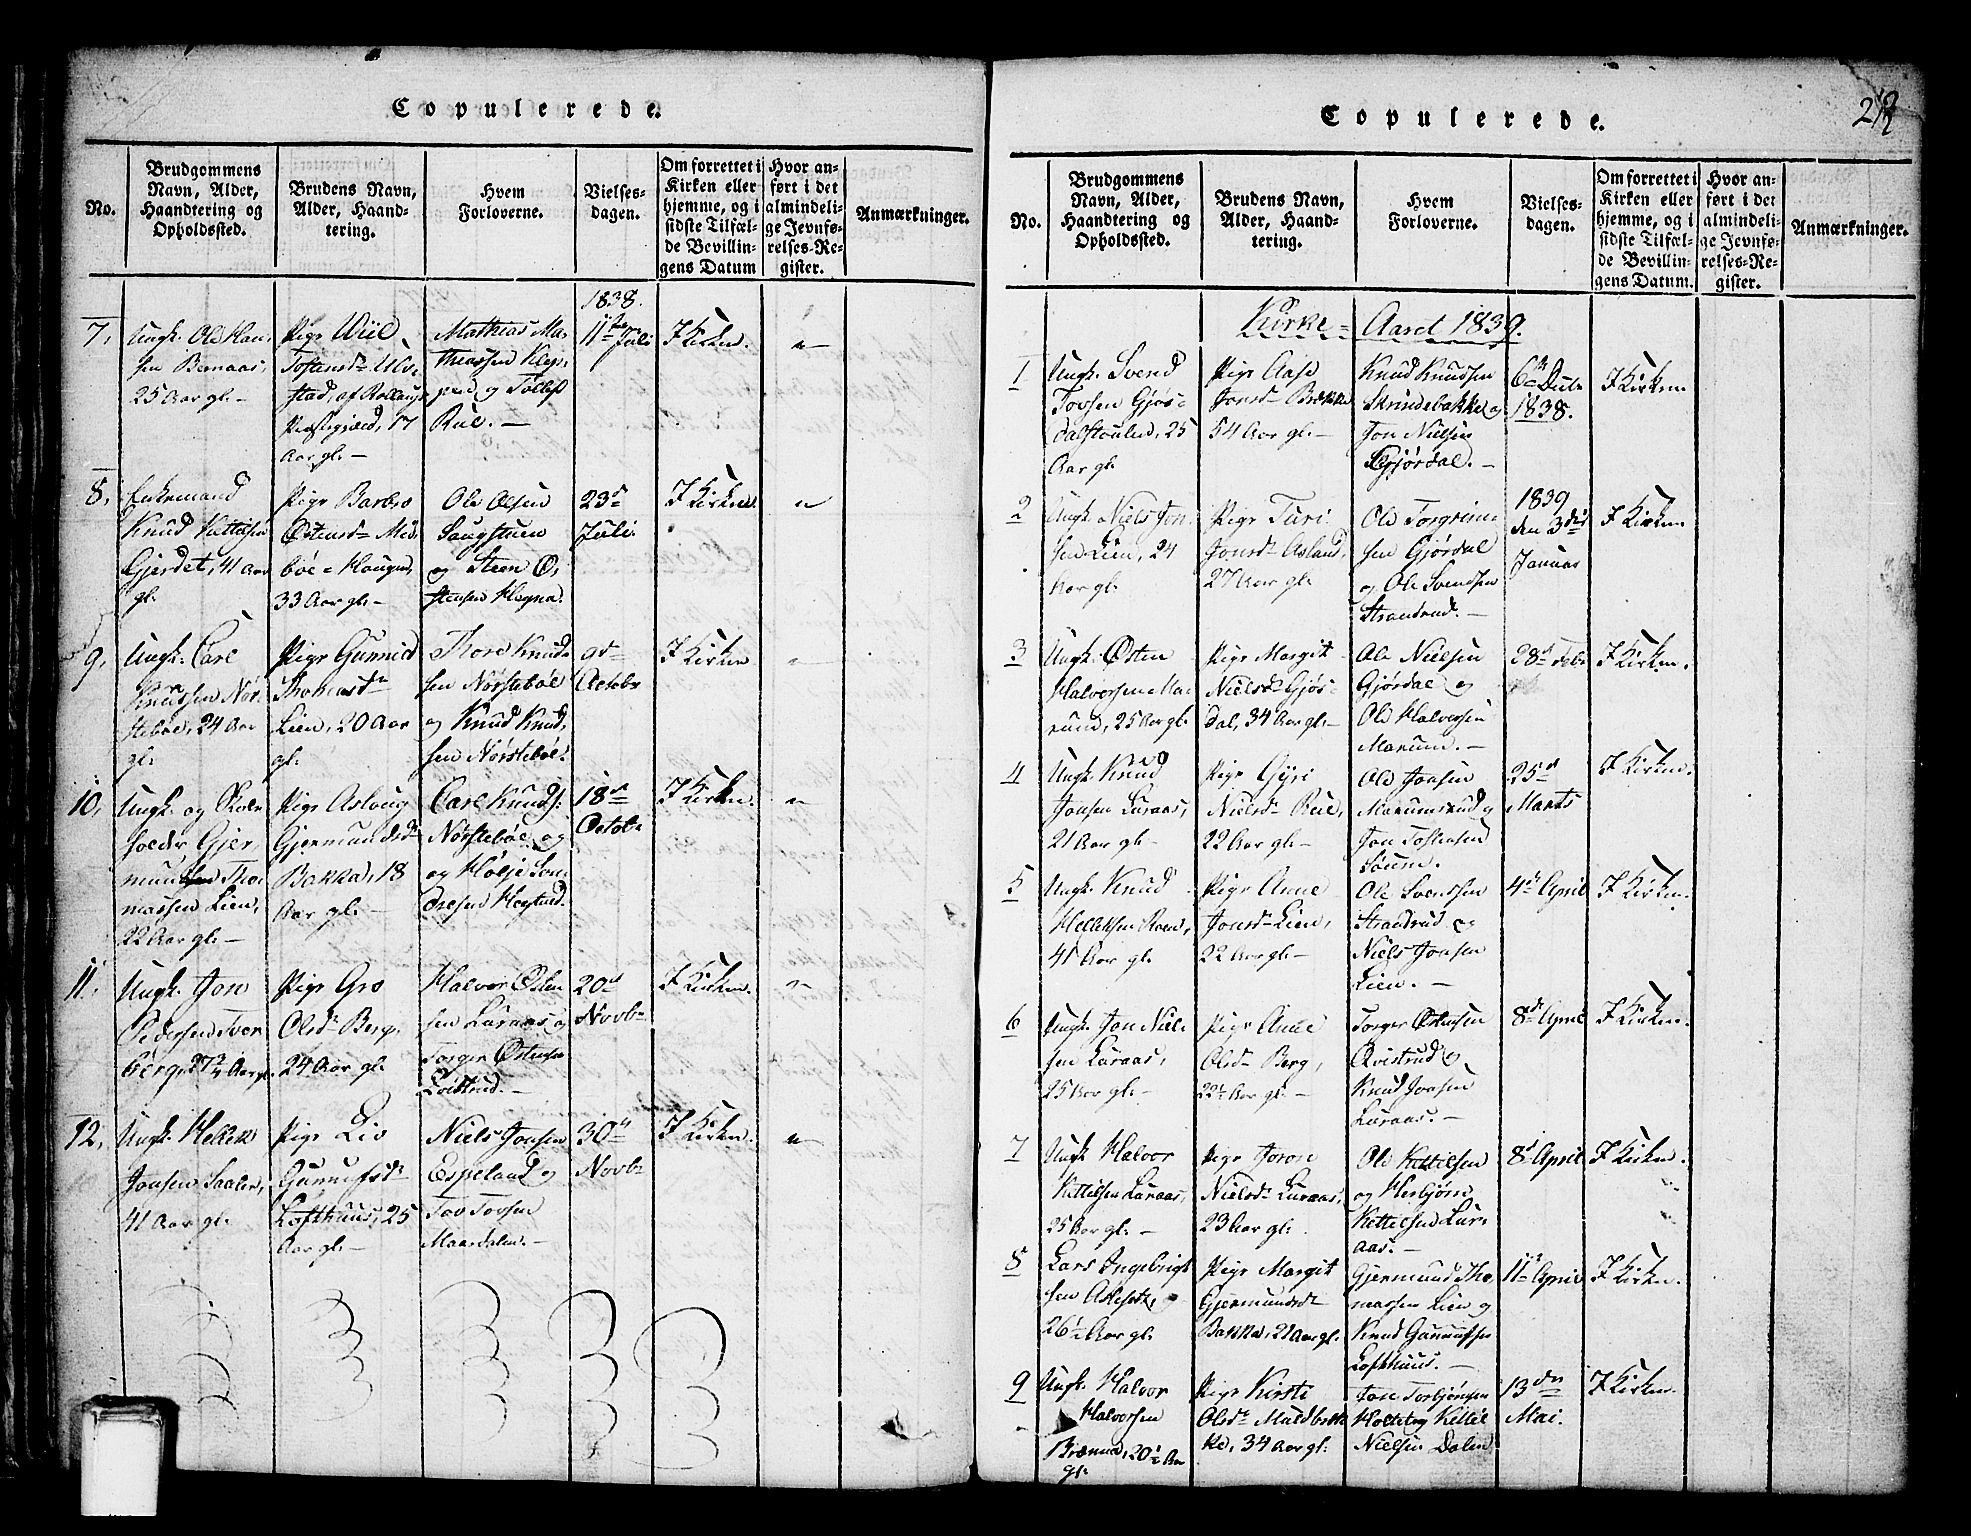 Copulerede.
No.
Brudgommens
Navn, Alder,
Haandtering og
Opholdssted.
Brudens Navn,
Alder, Haand-
tering.
Hvem
Forloverne.
Vielses-
dagen.
Om forrettet i
Kirken eller
hjemme, og i
sidste Tilfæl-
de Bevillin-
gens Datum
Hvor an-
ført i det
almindeli-
ge Jevnfø-
relses-Re-
gister.
Anmærkninger.
1838.
7,
Ungk. Ole Han-
sen Bernaas,
25 Aar gl. –
Pige Wiil
Tostensdr
stad, af Rollaugs
Præstegjæld, 17
Aar gl. –
Mathias Ma-
thiassen Klep-
pen og Tollef
Rue. –
11te Juli
I Kirken.
"
8,
Enkemand
Knud Kittilsen
Gjerdet, 41 Aar
gl.
Pige Barbro
Østensdr Mid-
bøe = Haugen,
33 Aar gl. –
Ole Olsen
Haugstuen
og Steen Ø-
stensen Hegna.
23de
Juli.
I Kirken.
"
9,
Ungk. Carl
Knudsen Nør-
steböe, 24 Aar
gl.
Pige Gunnild
Thomasdr
Lien, 20 Aar
gl.
Thore Knud-
sen Nørsteböe
og Knud Knud-
sen Nørsteböe.
9de
Octobr
I Kirken
"
10,
Ungk. og Skole-
holder Gjer-
mund Tho-
massen Lien,
22 Aar gl. –
Pige Aslaug
Gjermundsdr
Bakka, 18
Aar gl. –
Carl Knuds.
Nørsteböe og
og Høljе Son-
dresen Hegtved.
18de
Octobr
I Kirken.
"
11.
Ungk. Jon
Pedersen Tver-
berg, 27½ Aar gl.
Pige Gro
Olsdr Berg,
24 Aar gl.
Halvor Østen-
sen Luraas og
Torger Østensen
Qvistrud. –
20de
Novbr
I Kirken.
"
12.
Ungk. Hellek
Jonsen Saalen,
41 Aar gl.
Pige Liv
Gunnulfsdr
Lofthuus, 25
Aar gl. –
Niels Jonsen
Espeland og
Tov Tovsen
Maardalen. –
30te
Novbr
I Kirken.
"
212
Copulerede.
No.
Brudgommens
Navn, Alder,
Haandtering og
Opholdssted.
Brudens Navn,
Alder, Haand-
tering.
Hvem
Forloverne.
Vielses-
dagen.
Om forrettet i
Kirken eller
hjemme, og i
sidste Tilfæl-
de Bevillin-
gens Datum.
Hvor an-
ført i det
almindeli-
ge Jevnfø-
relses-Re-
gister.
Anmærkninger.
Kirke = Aaret 1839.
1
Ungk. Svend
Tovsen Gjøs-
dalstoulen, 25
Aar gl.
Pige Aase
Jonsdr Brække
54 Aar gl. –
Knud Knudsen
Skrindebakke og
Jon Nielsen
Gjørdal. –
6te Decbr
1838.
I Kirken.
2
Ungk. Niels Jon-
sen Lien, 24
Aar gl.
Pige Turi
Jonsdr Asland,
27 Aar gl. –
Ole Torgrim-
sen Gjørdal
og Ole Svendsen
Strandrud. –
1839
den 3die
Januar
I Kirken
3
Ungk. Østen
Halvorsen Ma-
rum, 25 Aar gl.
Pige Margit
Nielsdr Gjøs-
dal, 34 Aar gl. –
Ole Nielsen
Gjørdal og
Ole Halvorsen
Marum. –
28de Febr
I Kirken.
4
Ungk. Knud
Jonsen Luraas,
21 Aar gl. –
Pige Gyri
Nielsdr Rue,
22 Aar gl. –
Ole Jonsen
Marumsrud og
Jon Tostensen
25de
Marts
I Kirken.
5
Ungk. Knud
Helleksen Roen,
41 Aar gl.
Pige Anne
Jonsdr Lien,
22 Aar gl. –
Ole Svendsen
Strandrud og
Niels Jonsen
Lien. –
4de April
I Kirken.
6
Ungk. Jon Niel-
sen Luraas,
25 Aar gl. –
Pige Anne
Olsdr Berg,
22½ Aar gl. –
Torger Østensen
Qvistrud og
Knud Jonsen
Luraas. –
8de April
I Kirken.
7
Ungk. Halvor
Kittilsen Luraas,
25 Aar gl. –
Pige Joron
Nielsdr Luraas,
23 Aar gl. .
Ole Kittilsen
og Herbjørn
Kittilsen Lur-
aas. –
8de April
I Kirken.
8
Lars Ingebrigt-
sen Aslesett,
26½ Aar gl.
Pige Margit
Gjermundsdr
Bakka, 21 Aar gl.
Gjermund Tho-
massen Lien og
Knud Gunnulfsen
Lofthuus. –
11te April
I Kirken.
9
Ungk. Halvor
Halvorsen
Brænna, 20½ Aar
gl.
Pige Kirsti
Olsdr Maldbrek-
ke, 34 Aar gl.
Jon Torbjørnsen
Holte og Kittil
Nielsen Dalen
13den
Mai.
I Kirken.